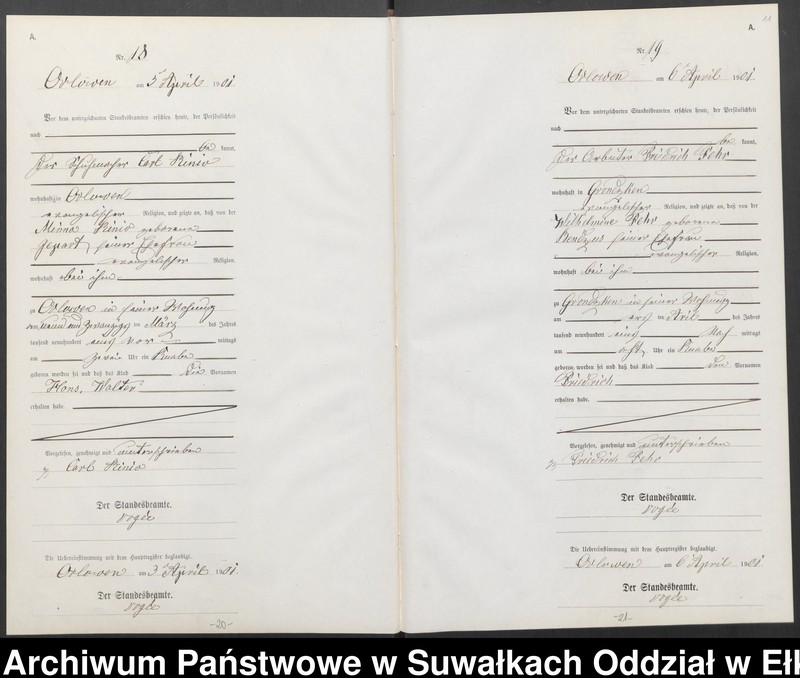 A.
Nr. 18
Orlowen am 5 April 1901.
Vor dem unterzeichneten Standesbeamten erschien heute, der Persönlichkeit
nach
be kannt,
der Schuhmacher Carl Kinio
wohnhaft in Orlowen
evangelischer Religion, und zeigte an, daß von der
Minna Kinio geborene
seiner Ehefrau
evangelischer Religion,
wohnhaft bei ihm
zu Orlowen in seiner Wohnung
am neun und zwanzigsten März des Jahres
tausend neunhundert eins vor mittags
um zwei Uhr ein Knabe
geboren worden sei und daß das Kind die Vornamen
Hans, Walter
erhalten habe.
Vorgelesen, genehmigt und unterschrieben
Carl Kinio
Der Standesbeamte.
Die Uebereinstimmung mit dem Hauptregister beglaubigt.
Orlowen am 5 April 1901.
Der Standesbeamte.
-20-
A.
Nr. 19
Orlowen am 6 April 1901.
Vor dem unterzeichneten Standesbeamten erschien heute, der Persönlichkeit
nach
be kannt,
der Arbeiter Friedrich
wohnhaft in Grondzken
evangelischer Religion, und zeigte an, daß von der
Wilhelmine geborene
seiner Ehefrau
evangelischer Religion,
wohnhaft bei ihm
zu Grondzken in seiner Wohnung
am April des Jahres
tausend neunhundert eins Nach mittags
um acht Uhr ein Knabe
geboren worden sei und daß das Kind den Vornamen
Friedrich
erhalten habe.
Vorgelesen, genehmigt und unterschrieben
Friedrich
Der Standesbeamte.
Die Uebereinstimmung mit dem Hauptregister beglaubigt.
Orlowen am 6 April 1901.
Der Standesbeamte.
-21-
Archiwum Państwowe w Suwałkach Oddział w Ełk